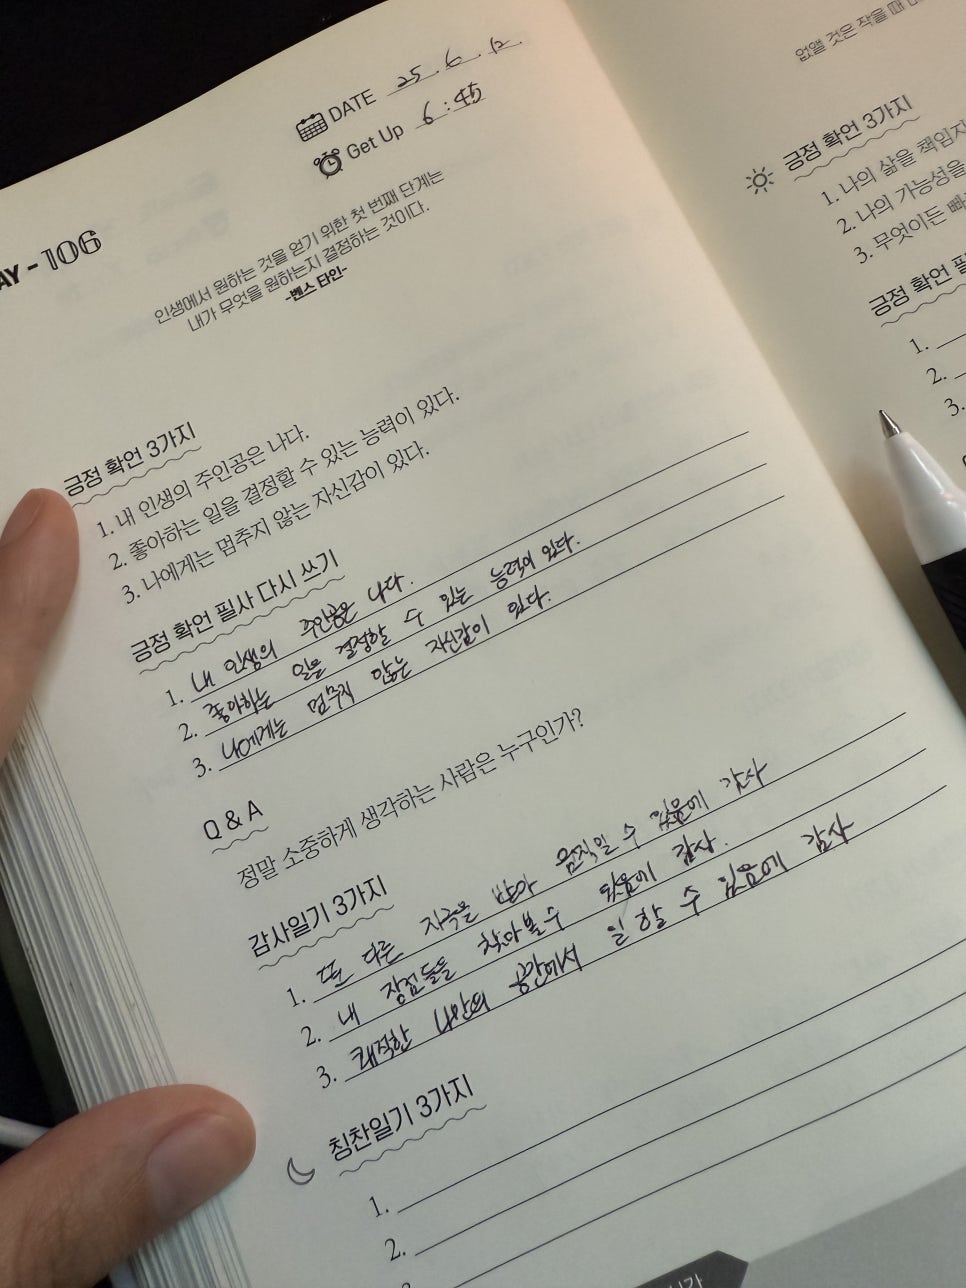 DATE 25. 6. 12.
Get Up 6:45
AY - 106
인생에서 원하는 것을 얻기 위한 첫 번째 단계는
내가 무엇을 원하는지 결정하는 것이다.
-벤스 타인-
긍정 확언 3가지
1. 내 인생의 주인공은 나다.
2. 좋아하는 일을 결정할 수 있는 능력이 있다.
3. 나에게는 멈추지 않는 자신감이 있다.
긍정 확언 필사 다시 쓰기
1. 내 인생의 주인공은 나다.
2. 좋아하는 일을 결정할 수 있는 능력이 있다.
3. 나에게는 멈추지 않는 자신감이 있다.
Q & A
정말 소중하게 생각하는 사람은 누구인가?
감사일기 3가지
1. 또 다른 자극을 받아 움직일 수 있음에 감사
2. 내 장점들을 찾아볼 수 있음에 감사.
3. 쾌적한 나만의 공간에서 일 할 수 있음에 감사
칭찬일기 3가지
1.
2.
없앨 것은 작을 때
긍정 확언 3가지
1. 나의 삶을 책임지
2. 나의 가능성을
3. 무엇이든
긍정 확언 필
1.
2.
3.